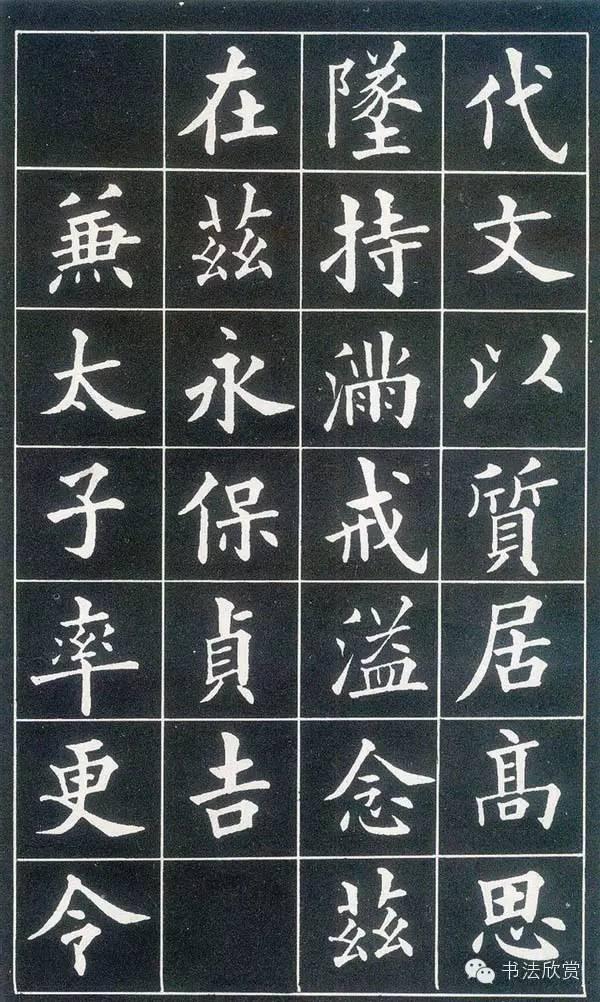 代文以質居髙思
墜持滿戒溢念兹
在兹永保貞吉
兼太子率更令
书法欣赏